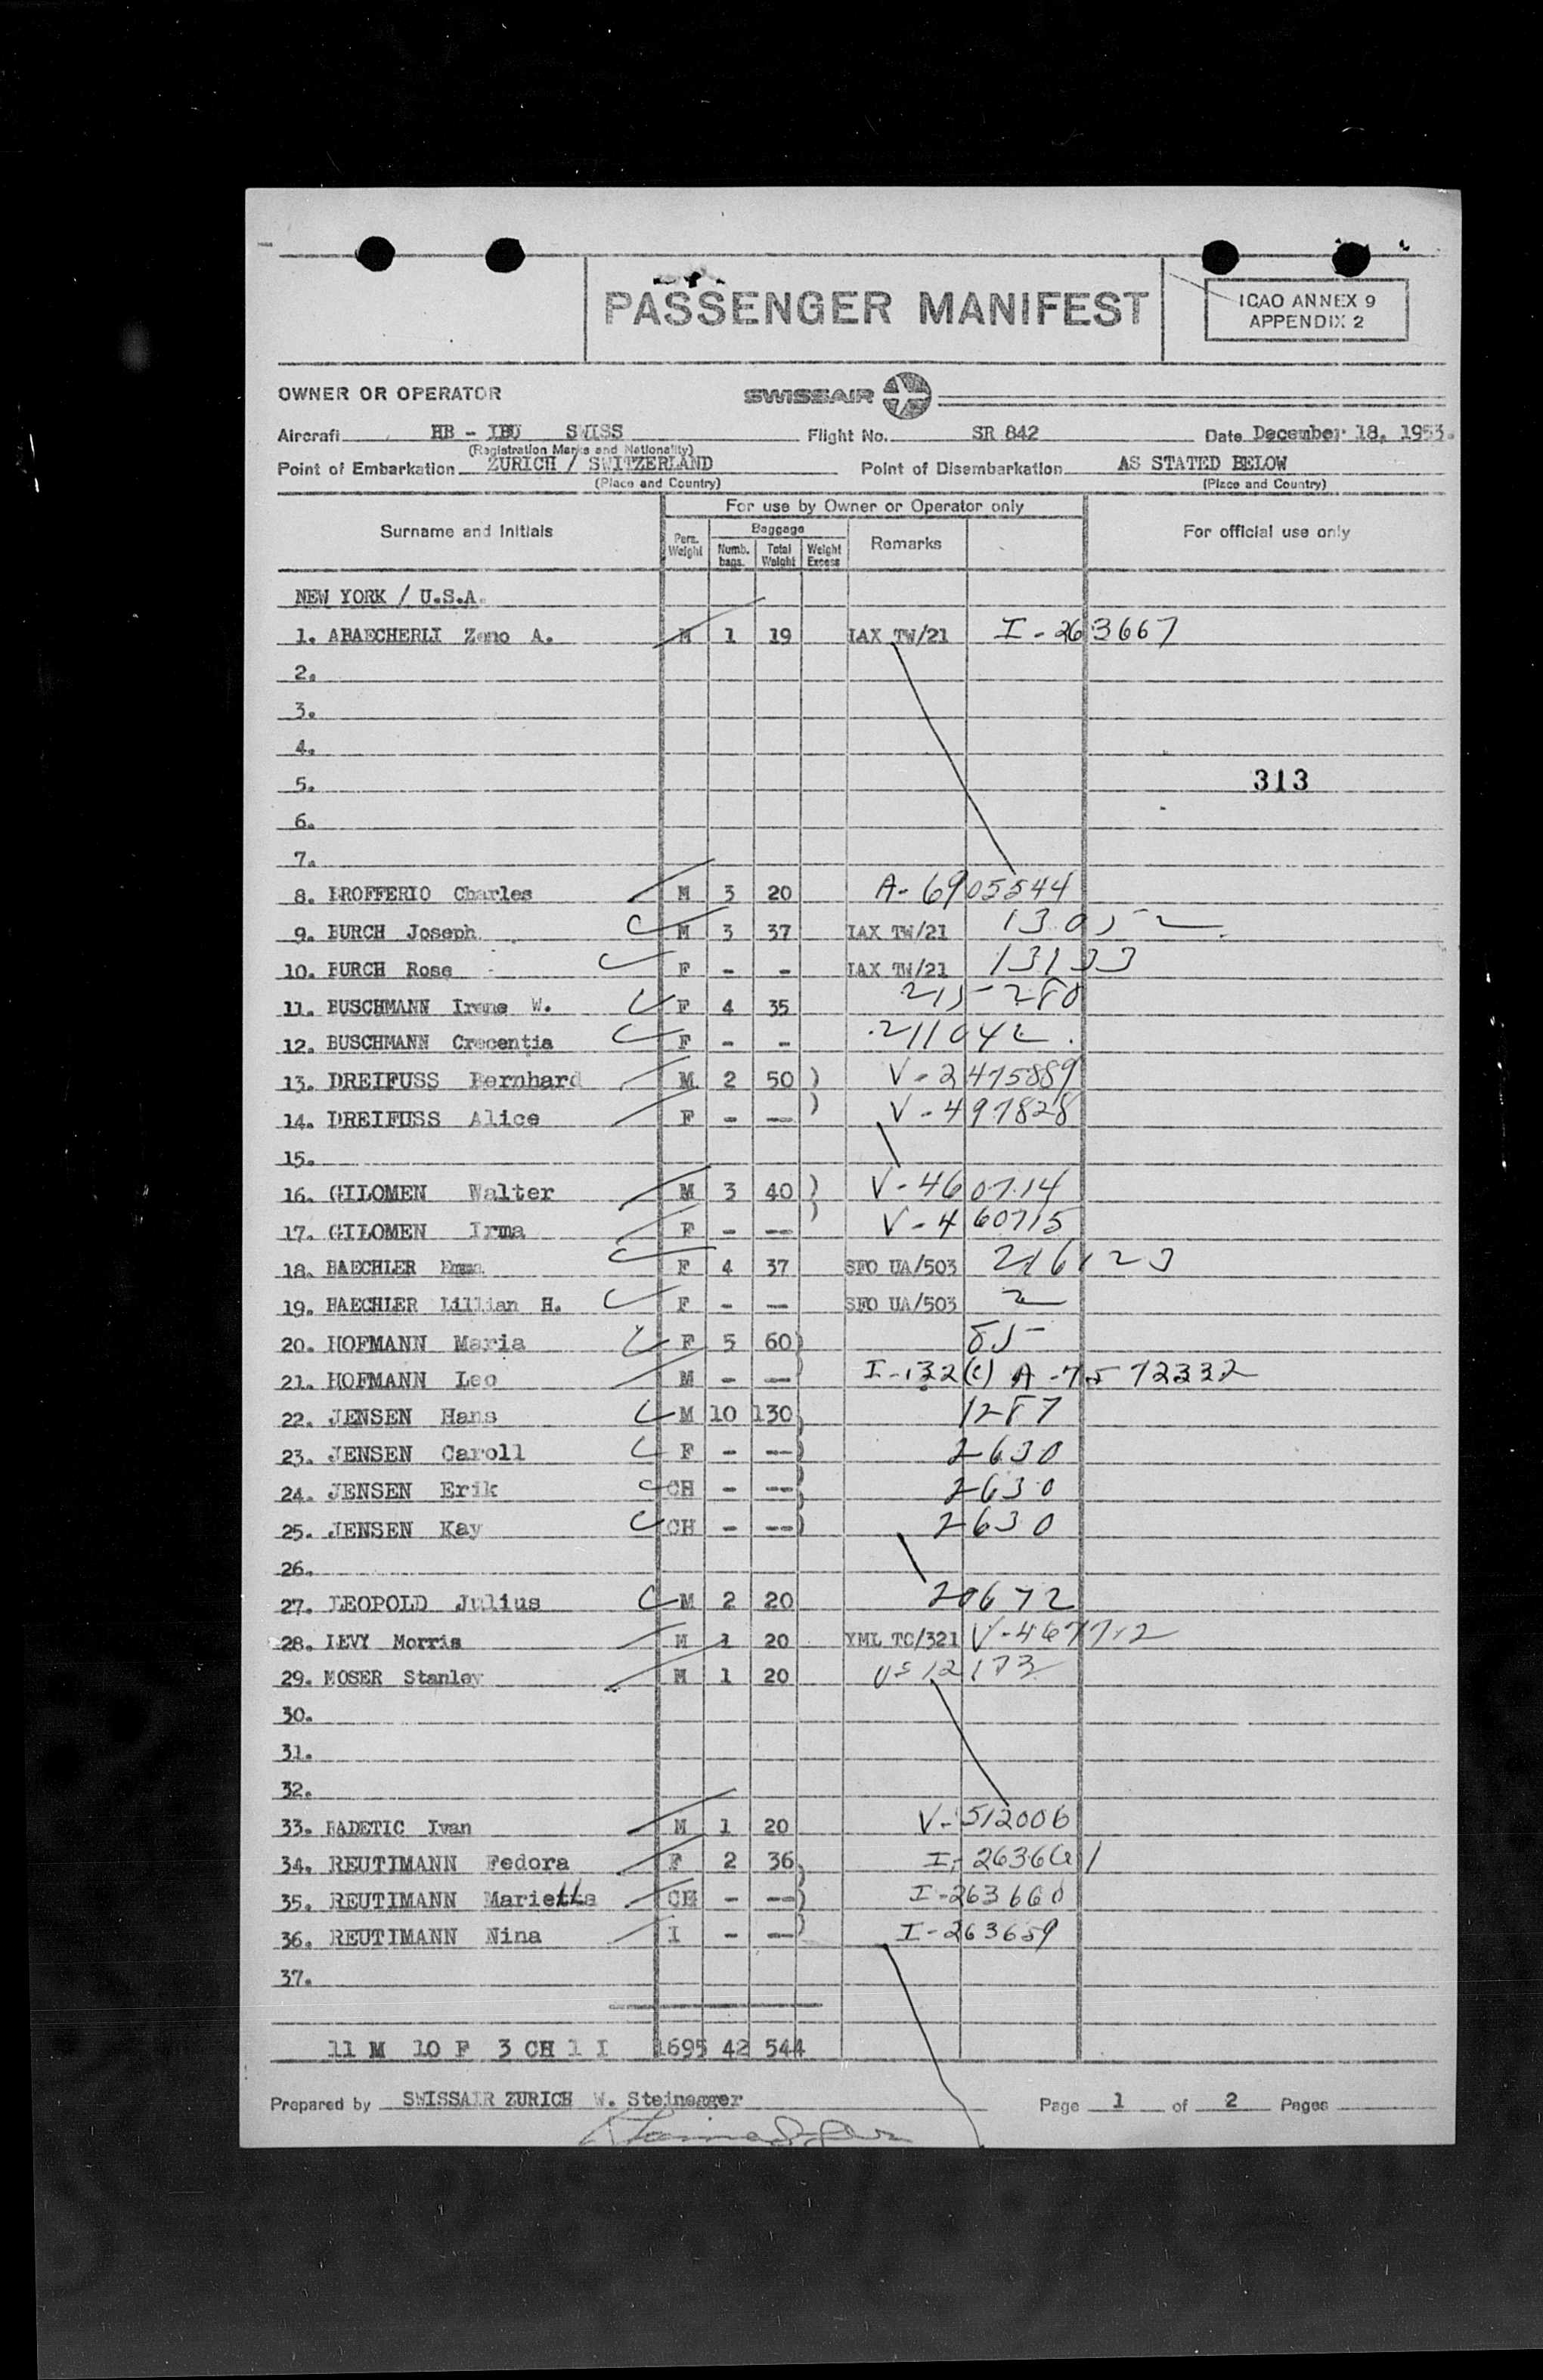 PASSENGER MANIFEST
ICAO ANNEX 9
APPENDIX 2
OWNER OR OPERATOR SWISSAIR
Aircraft HB - IBU SWISS Flight No. SR 842 Date December 18, 1953.
(Registration Marks and Nationality)
Point of Embarkation ZURICH / SWITZERLAND Point of Disembarkation AS STATED BELOW
(Place and Country) (Place and Country)
Surname and Initials For use by Owner or Operator only For official use only
Pers. Weight Baggage Numb. bags. Total Weight Weight Excess Remarks
NEW YORK / U.S.A.
1. ABAECHERLI Zeno A. M 1 19 IAX TW/21 I-263667
2.
3.
4.
5. 313
6.
7.
8. BROFFERIO Charles M 3 20 A-6905544
9. BURCH Joseph M 3 37 IAX TW/21 13052
10. BURCH Rose F - - IAX TW/21 13133
11. BUSCHMANN Irene W. F 4 35 215280
12. BUSCHMANN Crecentia F - - 211042
13. DREIFUSS Bernhard M 2 50 ) V-2475889
14. DREIFUSS Alice F - -- ) V-497828
15.
16. GILOMEN Walter M 3 40 ) V-460714
17. GILOMEN Irma F - -- ) V-460715
18. BAECHLER Emma F 4 37 SFO UA/503 216123
19. BAECHLER Lillian H. F - -- SFO UA/503 2
20. HOFMANN Maria F 5 60) 85
21. HOFMANN Leo M - -- ) I-132(c) A-7572332
22. JENSEN Hans M 10 130) 1287
23. JENSEN Caroll F - --) 2630
24. JENSEN Erik CH - --) 2630
25. JENSEN Kay CH - --) 2630
26.
27. LEOPOLD Julius M 2 20 20672
28. LEVY Morris M 1 20 YML TC/321
29. MOSER Stanley M 1 20
30.
31.
32.
33. RADETIC Ivan M 1 20 V-512006
34. REUTIMANN Fedora F 2 36) I-263661
35. REUTIMANN Marietta CH - --) I-263660
36. REUTIMANN Nina I - --) I-263659
37.
11 M 10 F 3 CH 1 I 1695 42 544
Prepared by SWISSAIR ZURICH W. Steinegger Page 1 of 2 Pages